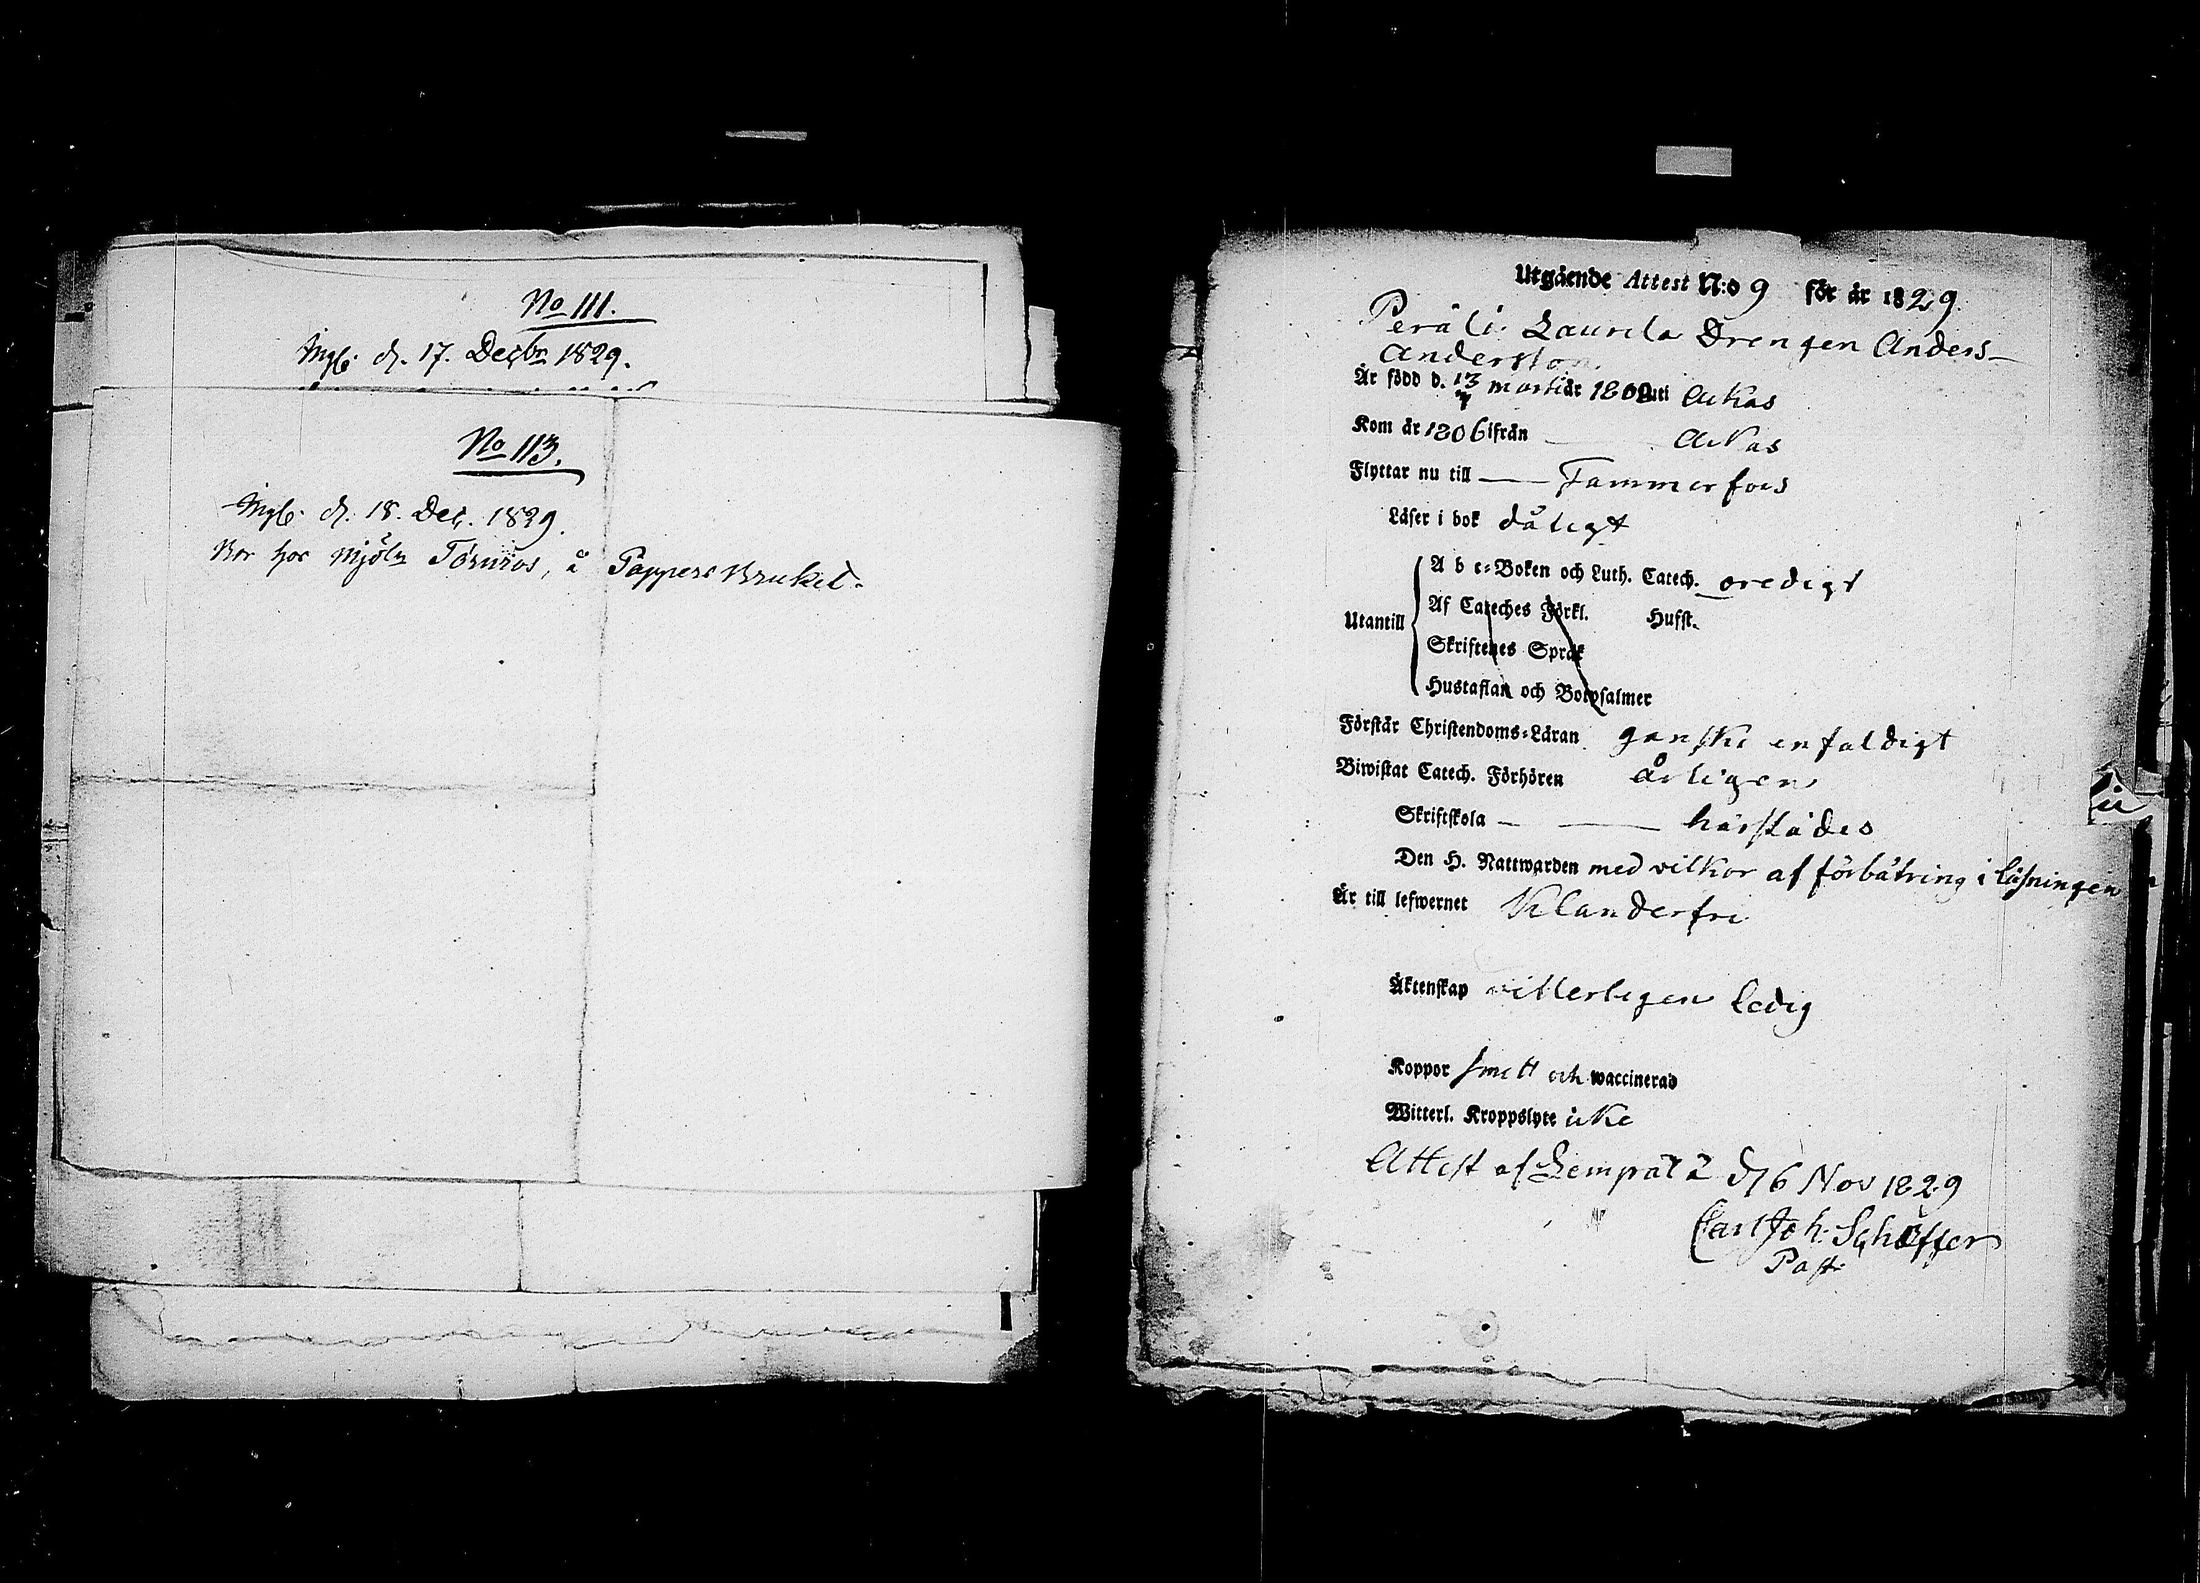 No 111.
Ingf. d. 17. Decbr 1829.
No 113.
Ingf. d. 18. Dec. 1829.
Bor hos Mjöln Törnros, å Pappers Bruket.
Utgående Attest N:o 9 för år 1829.
Perälä Laurila Drengen Anders
Andersson
Är född d. 13 marti år 1802 uti Ackas
Kom år 1806 ifrån Ackas
Flyttar nu till Tammerfors
Läser i bok dåligt
A b c-Boken och Luth. Catech. oredigt
Af Cateches Förkl. Husst.
Utantill
Skriftenes Språk
Hustaflan och Botpsalmer
Förstår Christendoms-Läran ganska enfaldigt
Biwistat Catech. Förhören årligen
Skriftskola härstädes
Den H. Nattwarden med vilkor af förbätring i läsningen
Är till lefwernet Klanderfri
Äktenskap vitterligen ledig
Koppor smitt och waccinerad
Witterl. Kroppslyte icke
Attest af Lempälä d 16 Nov 1829
Carl Joh. Schöffer
Past.